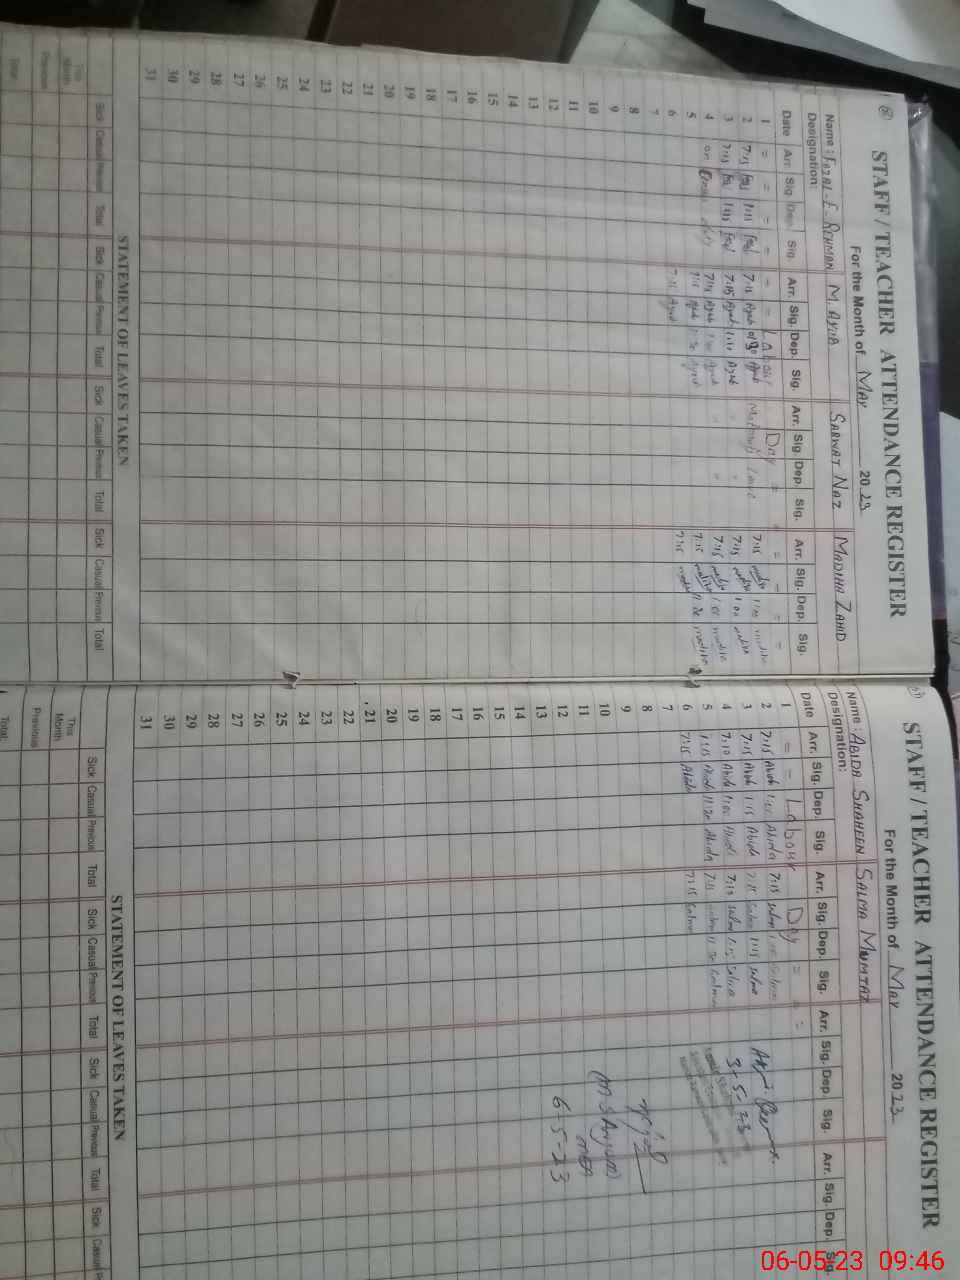 STAFF / TEACHER ATTENDANCE REGISTER
For the Month of May 2023
Name: FAZAL-E-REHMAN M. AYUB SARWAT NAZ MADIHA ZAHID
Designation:
Date Arr. Sig. Dep. Sig. Arr. Sig. Dep. Sig. Arr. Sig. Dep. Sig. Arr. Sig. Dep. Sig.
1 = = = = = = Labour Day = = = = =
2 7:15 1:15 7:15 Ayub Ayub Maternity Leave 7:15 1:00
3 7:15 1:15 7:15 Ayub Ayub " " 7:15 1:00
4 on duty 7:15 Ayub Ayub " " 7:15 1:00
5 7:15 Ayub Ayub 7:15
6 7:15 Ayub 7:15
7
8
9
10
11
12
13
14
15
16
17
18
19
20
21
22
23
24
25
26
27
28
29
30
31
STATEMENT OF LEAVES TAKEN
Sick Casual Previous Total Sick Casual Previous Total Sick Casual Previous Total Sick Casual Previous Total
This Month
Previous
Total
STAFF / TEACHER ATTENDANCE REGISTER
For the Month of May 2023
Name: ABIDA SHAHEEN SALMA MUMTAZ
Designation:
Date Arr. Sig. Dep. Sig. Arr. Sig. Dep. Sig. Arr. Sig. Dep. Sig. Arr. Sig. Dep. Sig.
1 = = Labour Day = =
2 7:15 Abida Abida 7:15 Salma Salma
3 7:15 Abida 1:15 Abida 7:15 Salma 1:15 Salma
4 7:10 Abida 1:00 Abida 7:10 Salma 1:15 Salma
5 7:15 Abida 11:30 Abida 7:15 Salma 11:30 Salma
6 7:15 Abida 7:15 Salma
3-5-23
7
8
9
10
11
12
6-5-23
13
14
15
16
17
18
19
20
21
22
23
24
25
26
27
28
29
30
31
STATEMENT OF LEAVES TAKEN
Sick Casual Previous Total Sick Casual Previous Total Sick Casual Previous Total Sick Casual
This Month
Previous
Total:
06-05-23 09:46